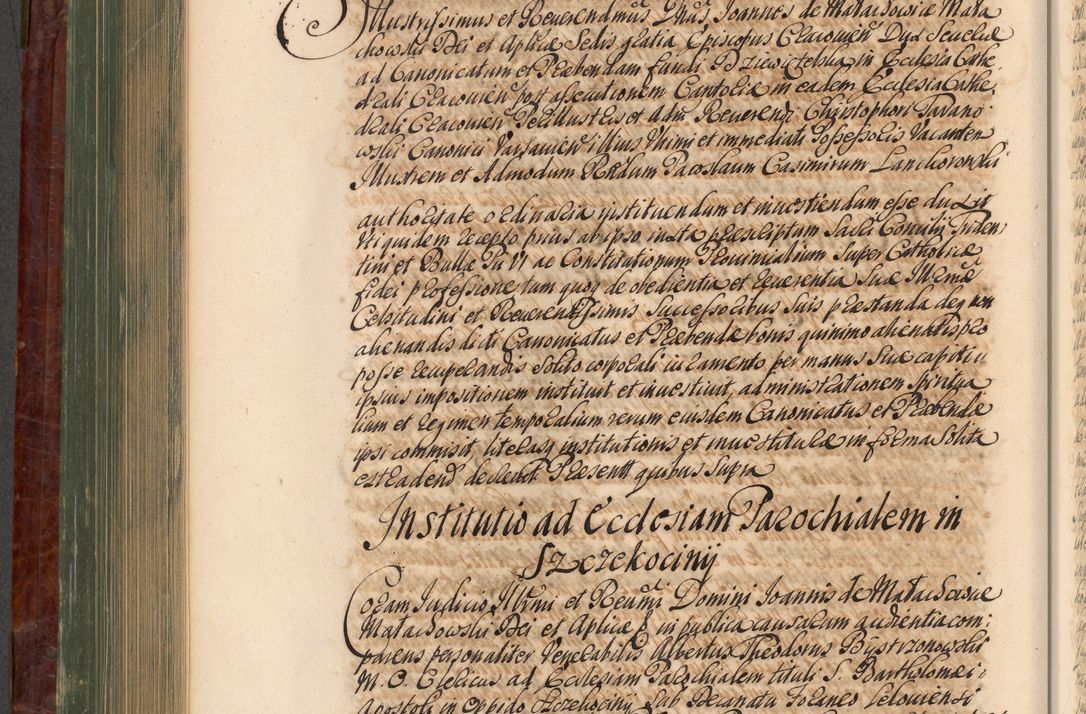 Illustrissimus et Reverendmus Dnus Joannes de Małachowice Mała
chowski Dei et Aplicæ Sedis gratia Episcopus Cracovien Dux Severiæ
ad Canonicatum et Præbendam fundi Dziewięcielska in Ecclesia Cathe
drali Cracovien post assecutionem Cantoriæ in eadem Ecclesia Cathe,
drali Cracovien Perillustris et Adm Reverendi Christophori Tarano
wski Canonici Varsavien illius Ultimi et immediati Possessoris Vacanten
Illustrem et Admodum Rndum Jaroslaum Casimirum Lanckoronski
authoritate ordinaria instituendum et investiendum esse duxit
Uti quidem recepto prius ab ipso iuxta præscriptum Sacri Concilij Triden
tini et Bullæ Pii VI ac Constitutionum Provincialium super Catholicæ
fidei professione tum quoq de obedientia et reverentia Suæ Illrmæ
Celsitudini et Reverendissimis Successoribus Suis præstanda deq non
alienandis dicti Canonicatus et Præbendæ bonis quinimo alienatis pro
posse recuperandis Solito corporali iuramento per manus Suæ capiti
ipsius impositionem instituit et investivit, administrationem Spiritua
lium et regimen temporalium rerum eiusdem Canonicatus et Præbendæ
ipsi commisit, literasq institutionis et investituræ in forma Solita
extradend decrevit Præsentt quibus Supra
Institutio ad Ecclesiam Parochialem in
Szczekociny
Coram Judicio Illrmi et Reumi Domini Joannis de Małachowice
Małachowski Dei et Aplicæ & in publica causarum audientia com:
parens personaliter Venerabilis Albertus Theodorus Bystrzonowski
M. O. Clericus ad Ecclesiam Parochialem tituli S. Bartholomæi
Apostoli in Oppido Szczekociny Sub Decanatu Foraneo Leloviensi